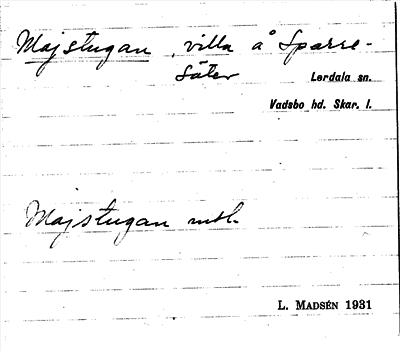 Majstugan, villa å Sparre-
säter Lerdala sn.
Vadsbo hd. Skar. l.
Majstugan mtl.
L. MADSÉN 1931